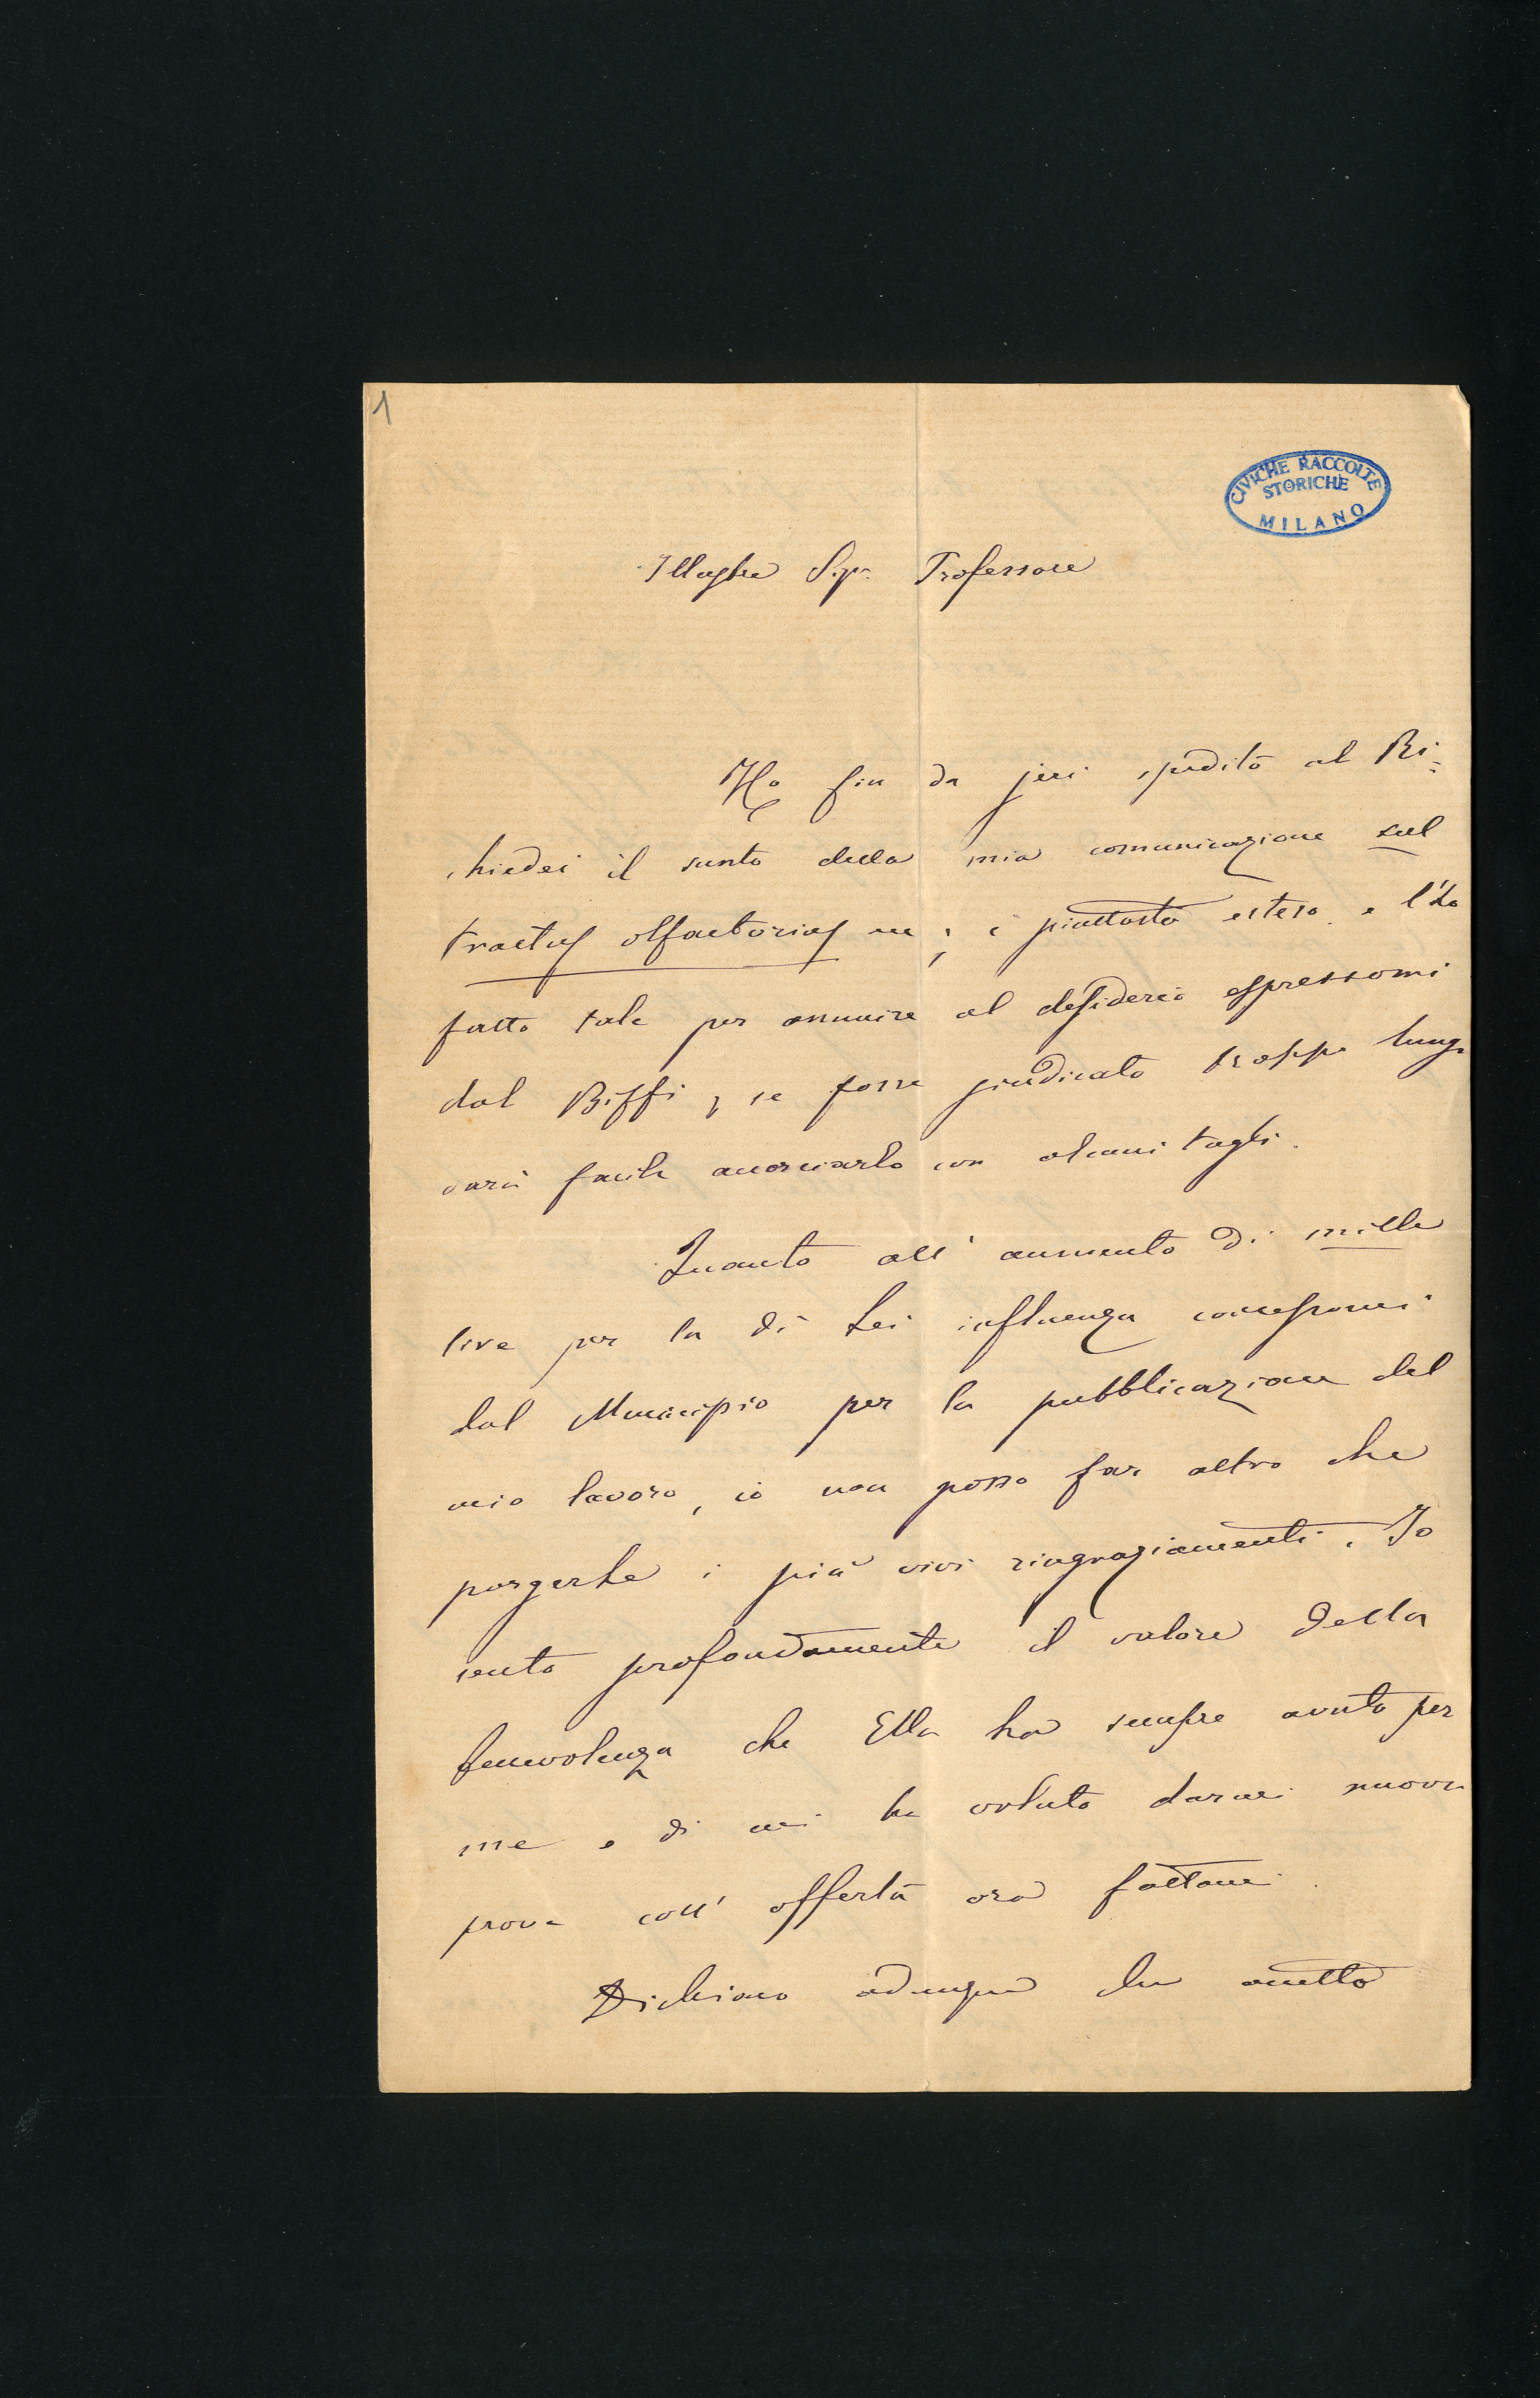 1
CIVICHE RACCOLTE
STORICHE
MILANO
Illustre Sigr. Professore
Ho fin da jeri spedito al Ri=
chiedei il sunto della mia comunicazione sul
tractus olfactorius; è piuttosto esteso e l'ho
fatto tale per annuire al desiderio espressomi
dal Biffi; se fosse giudicato troppo lungo
sarà facile accorciarlo con alcuni tagli.
Quanto all'aumento di mille
lire per la di Lei influenza concessomi
dal Municipio per la pubblicazione del
mio lavoro, io non posso far altro che
porgerLe i più vivi ringraziamenti. Io
sento profondamente il valore della
benevolenza che Ella ha sempre avuto per
me e di cui ha voluto darmi nuova
prova coll'offerta ora fattami.
Dichiaro adunque che accetto